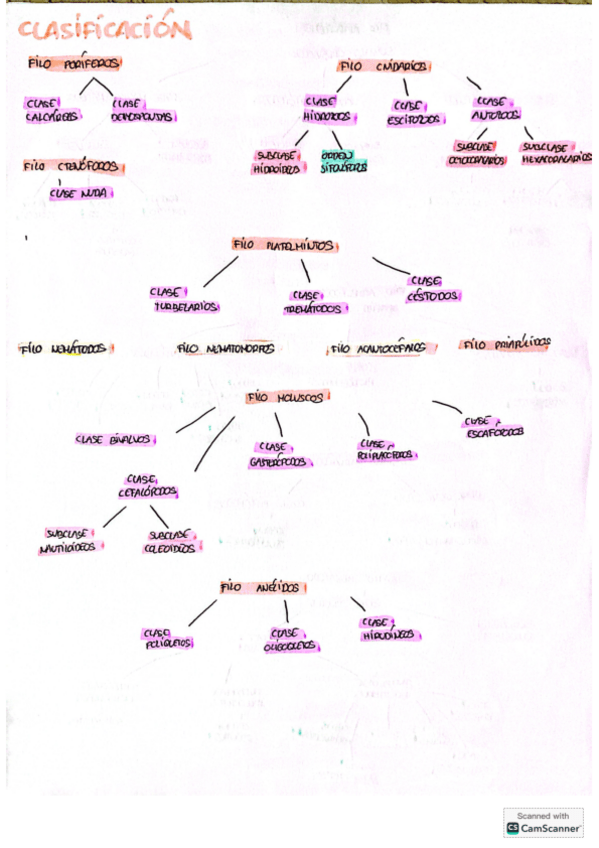 CLASIFICACIÓN
FILO PORÍFEROS
CLASE
CALCÁREAS
CLASE
DEMOSPONJIAS
FILO CNIDARIOS
CLASE
HIDROZOOS
CLASE
ESCIFOZOOS
CLASE
ANTOZOOS
SUBCLASE
HIDROIDEOS
ORDEN
SIFONÓFOROS
SUBCLASE
OCTOCORALARIOS
SUBCLASE
HEXACORALARIOS
FILO CTENÓFOROS
CLASE NUDA
FILO PLATELMINTOS
CLASE
TURBELARIOS
CLASE
TREMÁTODOS
CLASE
CÉSTODOS
FILO NEMÁTODOS
FILO NEMATOMORFOS
FILO ACANTOCÉFALOS
FILO PRIAPÚLIDOS
FILO MOLUSCOS
CLASE BIVALVOS
CLASE
GASTERÓPODOS
CLASE
POLIPLACÓFOROS
CLASE
ESCAFÓPODOS
CLASE
CEFALÓPODOS
SUBCLASE
NAUTILOIDEOS
SUBCLASE
COLEOIDEOS
FILO ANÉLIDOS
CLASE
POLIQUETOS
CLASE
OLIGOQUETOS
CLASE
HIRUDÍNEOS
Scanned with
CS CamScanner